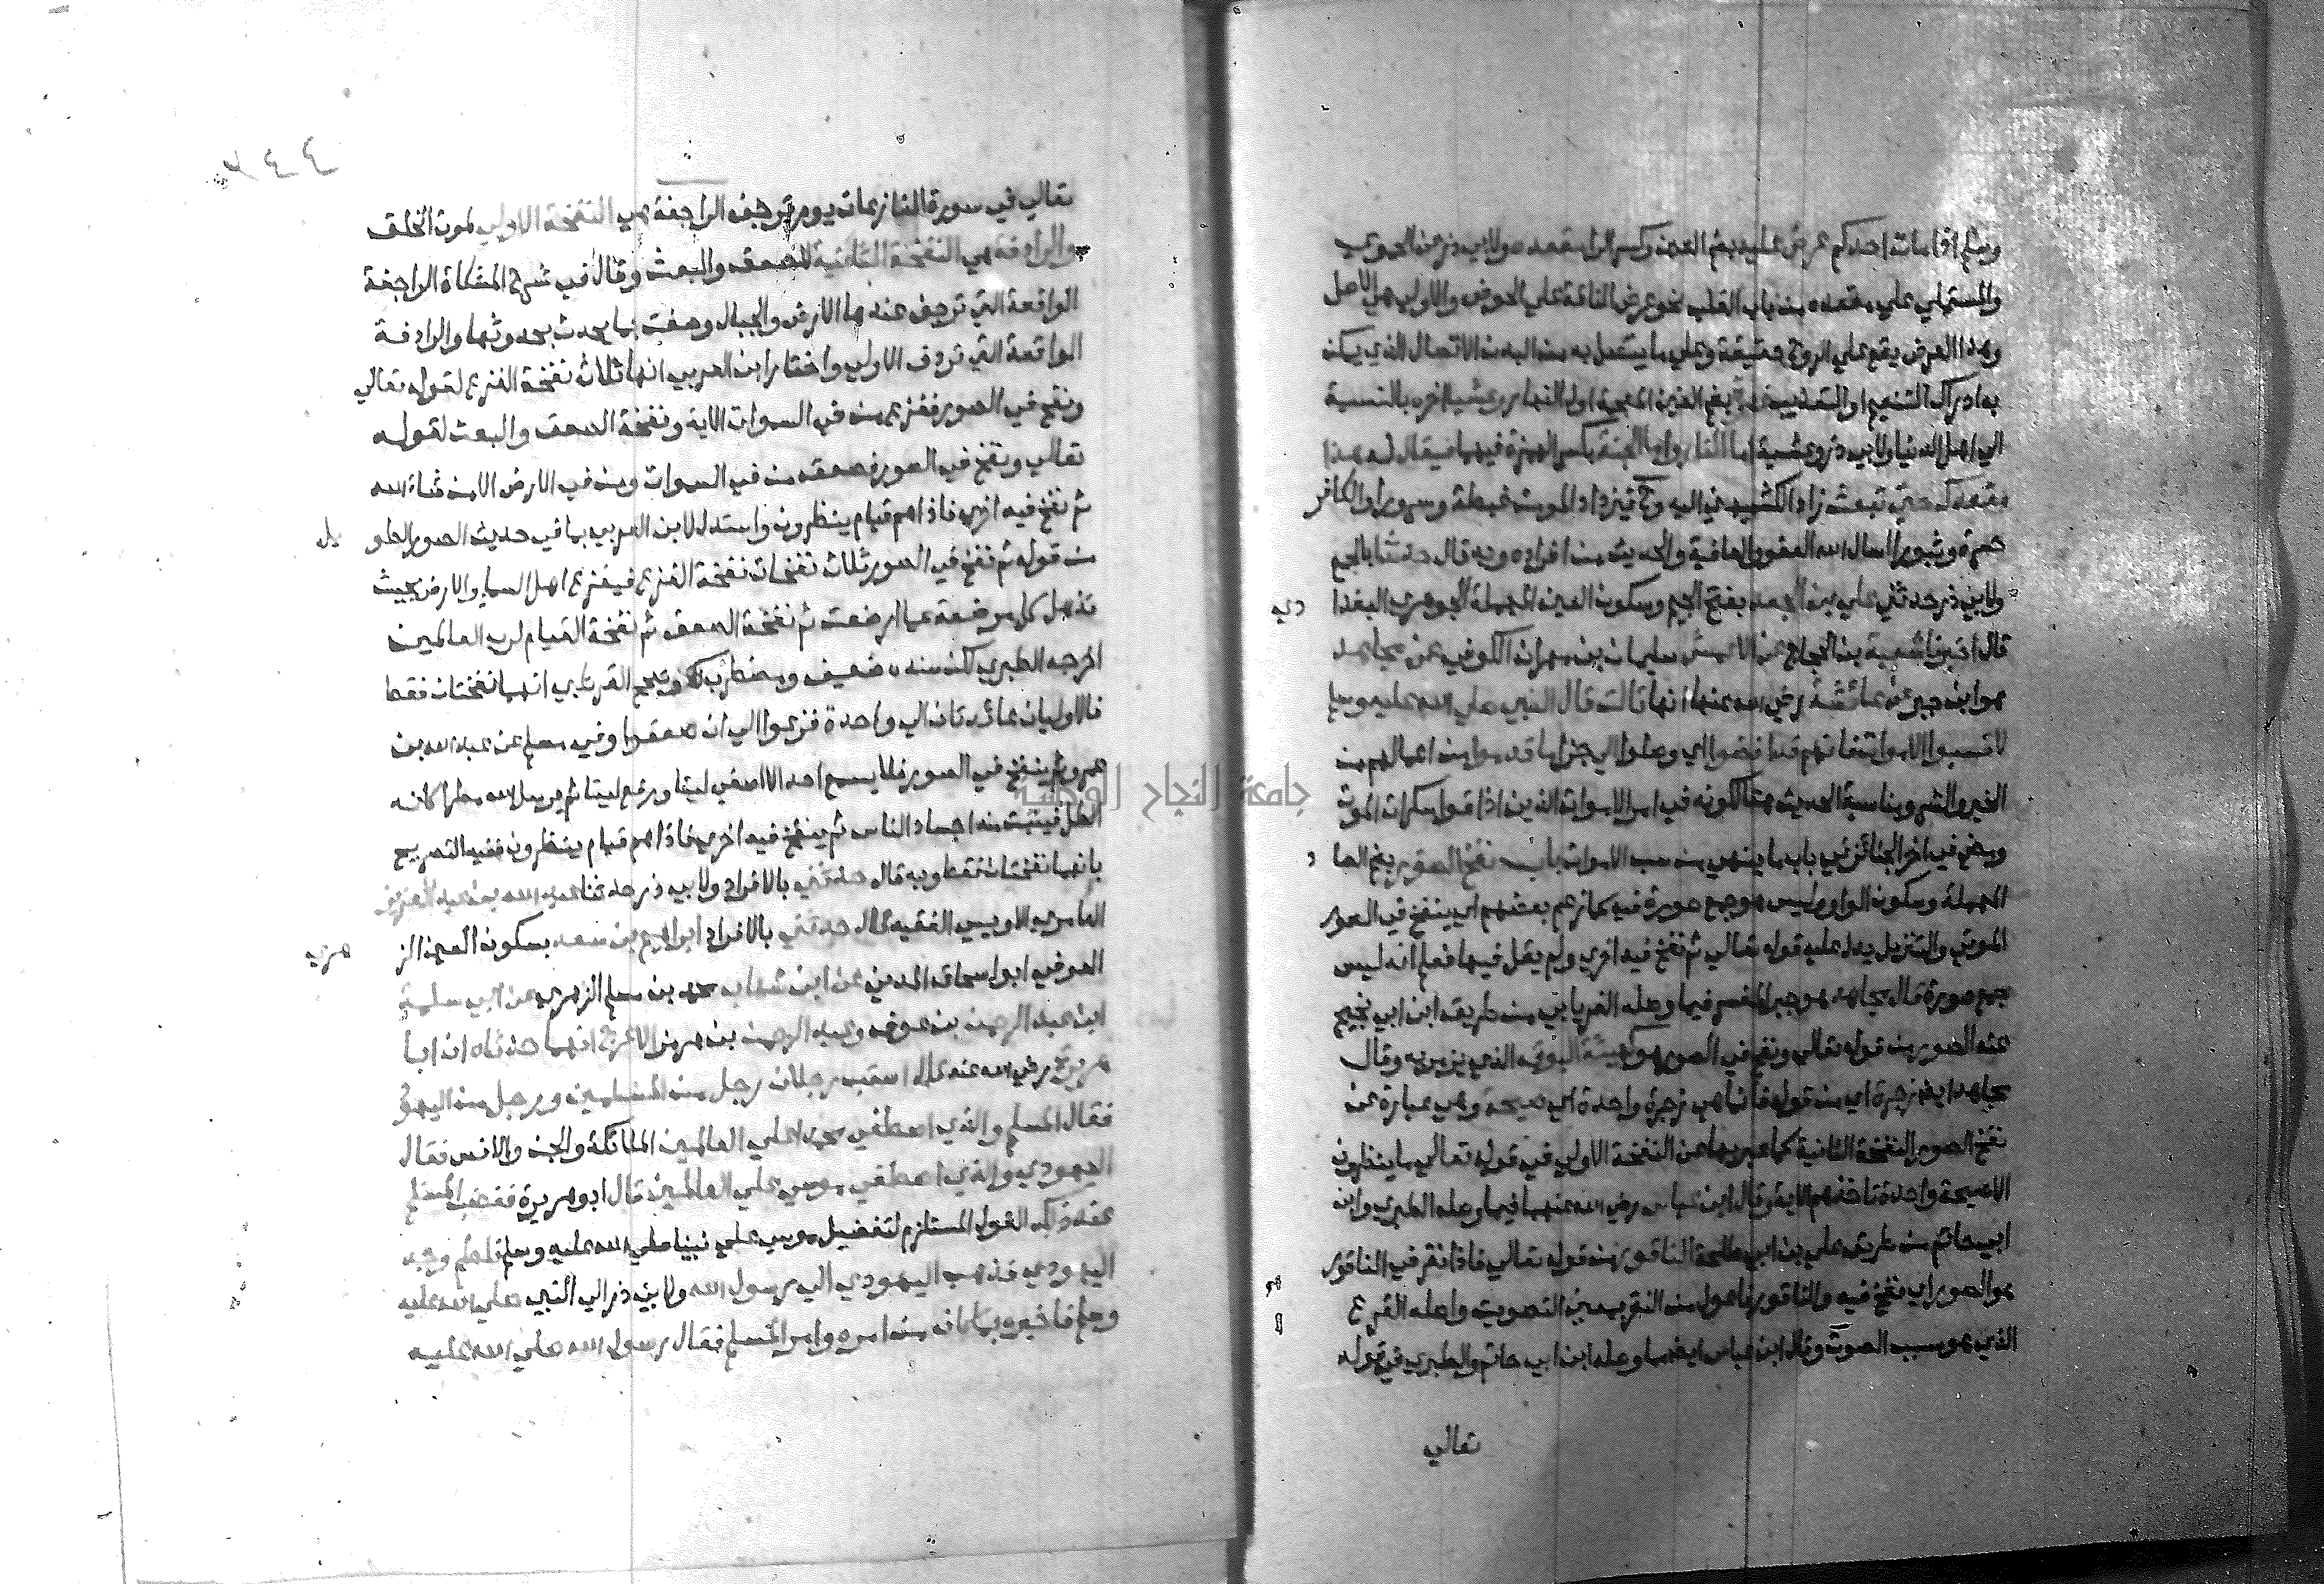 وسلم اذا مات احدكم عرض عليه بضم العين وكسر الراء مقعده ولابي ذر عن الحموي
والمستملي علي مقعده من باب القلب نحو عرض الناقة علي الحوض والاولي هي الاصل
وهذا العرض يقع علي الروح حقيقة وعلي ما يتصل به من البدن الاتصال الذي يمكن
به ادراك التنعيم او التعذيب بضم الغين المعجمة اول النهار وعشيا اخره بالنسبة
الي اهل الدنيا ولابي ذر وعشية اما النار واما الجنة بكسر الهمزة فيهما فيقال له هذا
مقعدك حتي تبعث زاد الكشميهني اليه وح فيزداد المومن غبطة وسرورا والكافر
حسرة وثبورا اسال الله العفو والعافية والحديث من افراده وبه قال حدثنا بالجمع
ولابي ذر حدثني علي بن الجعد بفتح الجيم وسكون العين المهملة الجوهري البغدا دي
قال اخبرنا شعبة بن الحجاج عن الاعمش سليمان بن مهران الكوفي عن مجاهد
هو ابن جبر عن عائشة رضي الله عنها انها قالت قال النبي صلي الله عليه وسلم
لا تسبوا الاموات فانهم قد افضوا اي وصلوا الي جزا ما قدموا من اعمالهم من
الخير والشر ومناسبة الحديث هنا لكونه في امر الاموات الذين اذا قوا سكرات الموت
ومضي في اخر الجنائز في باب ما ينهي من سب الاموات باب نفخ الصور بضم الصا د
المهملة وسكون الواو وليس هو جمع صورة كما زعم بعضهم اي ينفخ في الصور
الموتي والتنزيل يدل عليه قوله تعالي ثم نفخ فيه اخري ولم يقل فيها فعلم انه ليس
جمع صورة قال مجاهد هو جبر المفسر فيما وصله الفريابي من طريق ابن ابي نجيح
عنه الصور من قوله تعالي ونفخ في الصور هو كهيئة البوق الذي يزمر به وقال
مجاهد ايضا زجرة اي من قوله فانما هي زجرة واحدة اي صيحة وهي عبارة عن
نفخ الصور النفخة الثانية كما عبر بها عن النفخة الاولي في قوله تعالي ما ينظرون
الا صيحة واحدة تاخذهم الاية وقال ابن عباس رضي الله عنهما فيما وصله الطبري وابن
ابي حاتم من طريق علي بن ابي طلحة الناقور من قوله تعالي فاذا نقر في الناقور
هو الصور اي نفخ فيه والناقور فاعول من النقر بمعني التصويت واصله القرع
الذي هو سبب الصوت وقال ابن عباس ايضا وصله ابن ابي حاتم والطبري في قوله
تعالي
٤٤٢
تعالي في سورة النازعات يوم ترجف الراجفة هي النفخة الاولي لموت الخلق
والرادفة هي النفخة الثانية للصعق والبعث وقال في شرح المشكاة الراجفة
الواقعة التي ترجف عندها الارض والجبال وصفت بما يحدث بحدوثها والرادفة
الواقعة التي تردف الاولي واختار ابن العربي انها ثلاث نفخة الفزع لقوله تعالي
ونفخ في الصور ففزع من في السموات الاية ونفخة الصعق والبعث لقوله
تعالي ونفخ في الصور فصعق من في السموات ومن في الارض الا من شاء الله
ثم نفخ فيه اخري فاذا هم قيام ينظرون واستدل لابن العربي بما في حديث الصور الطو يل
من قوله ثم نفخ في الصور ثلاث نفخات نفخة الفزع فيفزع اهل السماء والارض بحيث
تذهل كل مرضعة عما ارضعت ثم نفخة الصعق ثم نفخة القيام لرب العالمين
اخرجه الطبري لكن سنده ضعيف ومضطرب وصحح القرطبي انهما نفختان فقط
فالاوليان عائدتان الي واحدة فزعوا الي ان صعقوا وفي مسلم عن عبد الله بن
عمرو ثم ينفخ في الصور فلا يسمع احد الا اصغي ليتا ورفع ليتا ثم يرسل الله مطرا كانه
الطل فينبت منه اجساد الناس ثم ينفخ فيه اخري فاذا هم قيام ينظرون ففيه التصريح
بانهما نفختان فقط وبه قال حدثني بالافراد ولابي ذر حدثنا عبد الله بن عبد العزيز
العامري الاويسي الفقيه قال حدثني بالافراد ابراهيم بن سعد بسكون العين الز هري
العوفي ابو اسحاق المدني عن ابن شهاب محمد بن مسلم الزهري عن ابي سلمة
ابن عبد الرحمن بن عوف وعبد الرحمن بن هرمز الاعرج انهما حدثاه ان ابا
هريرة رضي الله عنه قال استب رجلان رجل من المسلمين ورجل من اليهود
فقال المسلم والذي اصطفي محمدا علي العالمين الملائكة والجن والانس فقال
اليهودي والذي اصطفي موسي علي العالمين قال ابو هريرة فغضب المسلم
عند ذلك القول المستلزم لتفضيل موسي علي نبينا صلي الله عليه وسلم فلطم وجه
اليهودي فذهب اليهودي الي رسول الله ولابي ذر الي النبي صلي الله عليه
وسلم فاخبره بما كان من امره وامر المسلم فقال رسول الله صلي الله عليه
جامعة النجاح الوطنية